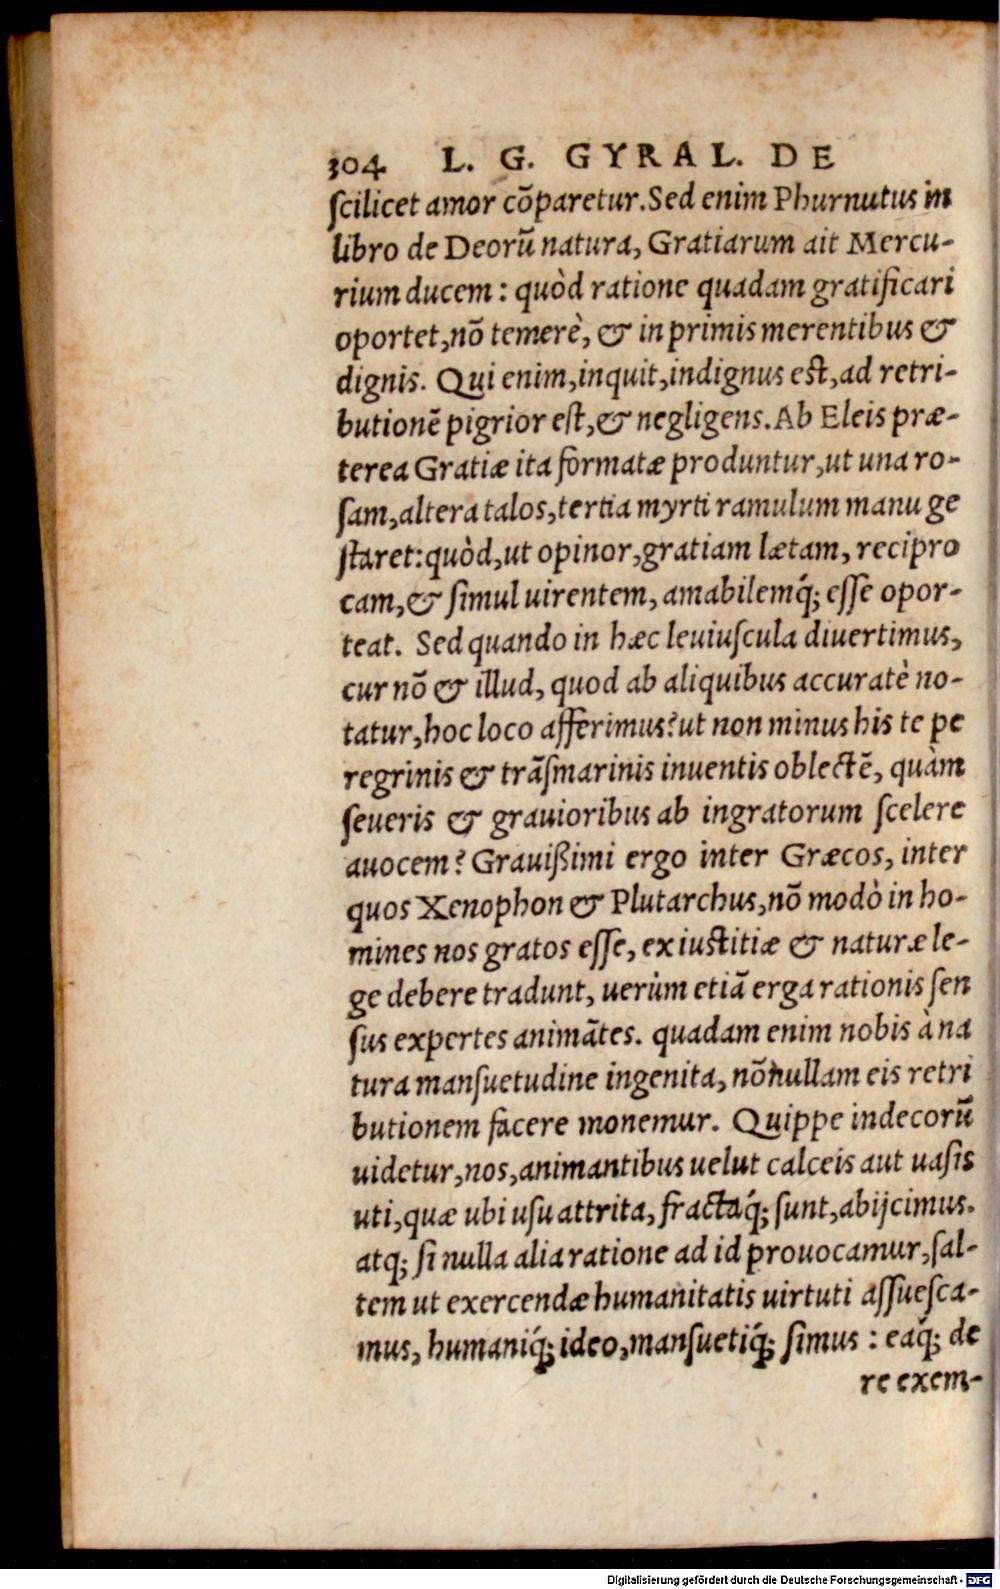 304 L. G. GYRAL. DE
ſcilicet amor cõparetur. Sed enim Phurnutus in
libro de Deorũ natura, Gratiarum ait Mercu-
rium ducem: quòd ratione quadam gratificari
oportet, nõ temerè, & in primis merentibus &
dignis. Qui enim, inquit, indignus est, ad retri-
butionẽ pigrior eſt, & negligens. Ab Eleis præ-
terea Gratiæ ita formatæ produntur, ut una ro-
ſam, altera talos, tertia myrti ramulum manu ge
ſtaret: quòd, ut opinor, gratiam lætam, recipro
cam, & ſimul uirentem, amabilemq́; eſſe opor-
teat. Sed quando in hæc leuiuſcula diuertimus,
cur nõ & illud, quod ab aliquibus accuratè no-
tatur, hoc loco afferimus? ut non minus his te pe
regrinis & trãſmarinis inuentis oblectẽ, quàm
ſeueris & grauioribus ab ingratorum ſcelere
auocem? Grauißimi ergo inter Græcos, inter
quos Xenophon & Plutarchus, nõ modò in ho-
mines nos gratos eſſe, ex iustitiæ & naturæ le-
ge debere tradunt, uerùm etiã erga rationis ſen
ſus expertes animãtes. quadam enim nobis à na
tura manſuetudine ingenita, nõnullam eis retri
butionem facere monemur. Quippe indecorũ
uidetur, nos, animantibus uelut calceis aut uaſis
uti, quæ ubi uſu attrita, fractaq́; ſunt, abijcimus.
atq; ſi nulla alia ratione ad id prouocamur, ſal-
tem ut exercendæ humanitatis uirtuti aſſueſca-
mus, humaniq́; ideo, manſuetiq́; ſimus: eaq́; de
re exem-
Digitalisierung gefördert durch die Deutsche Forschungsgemeinschaft - DFG